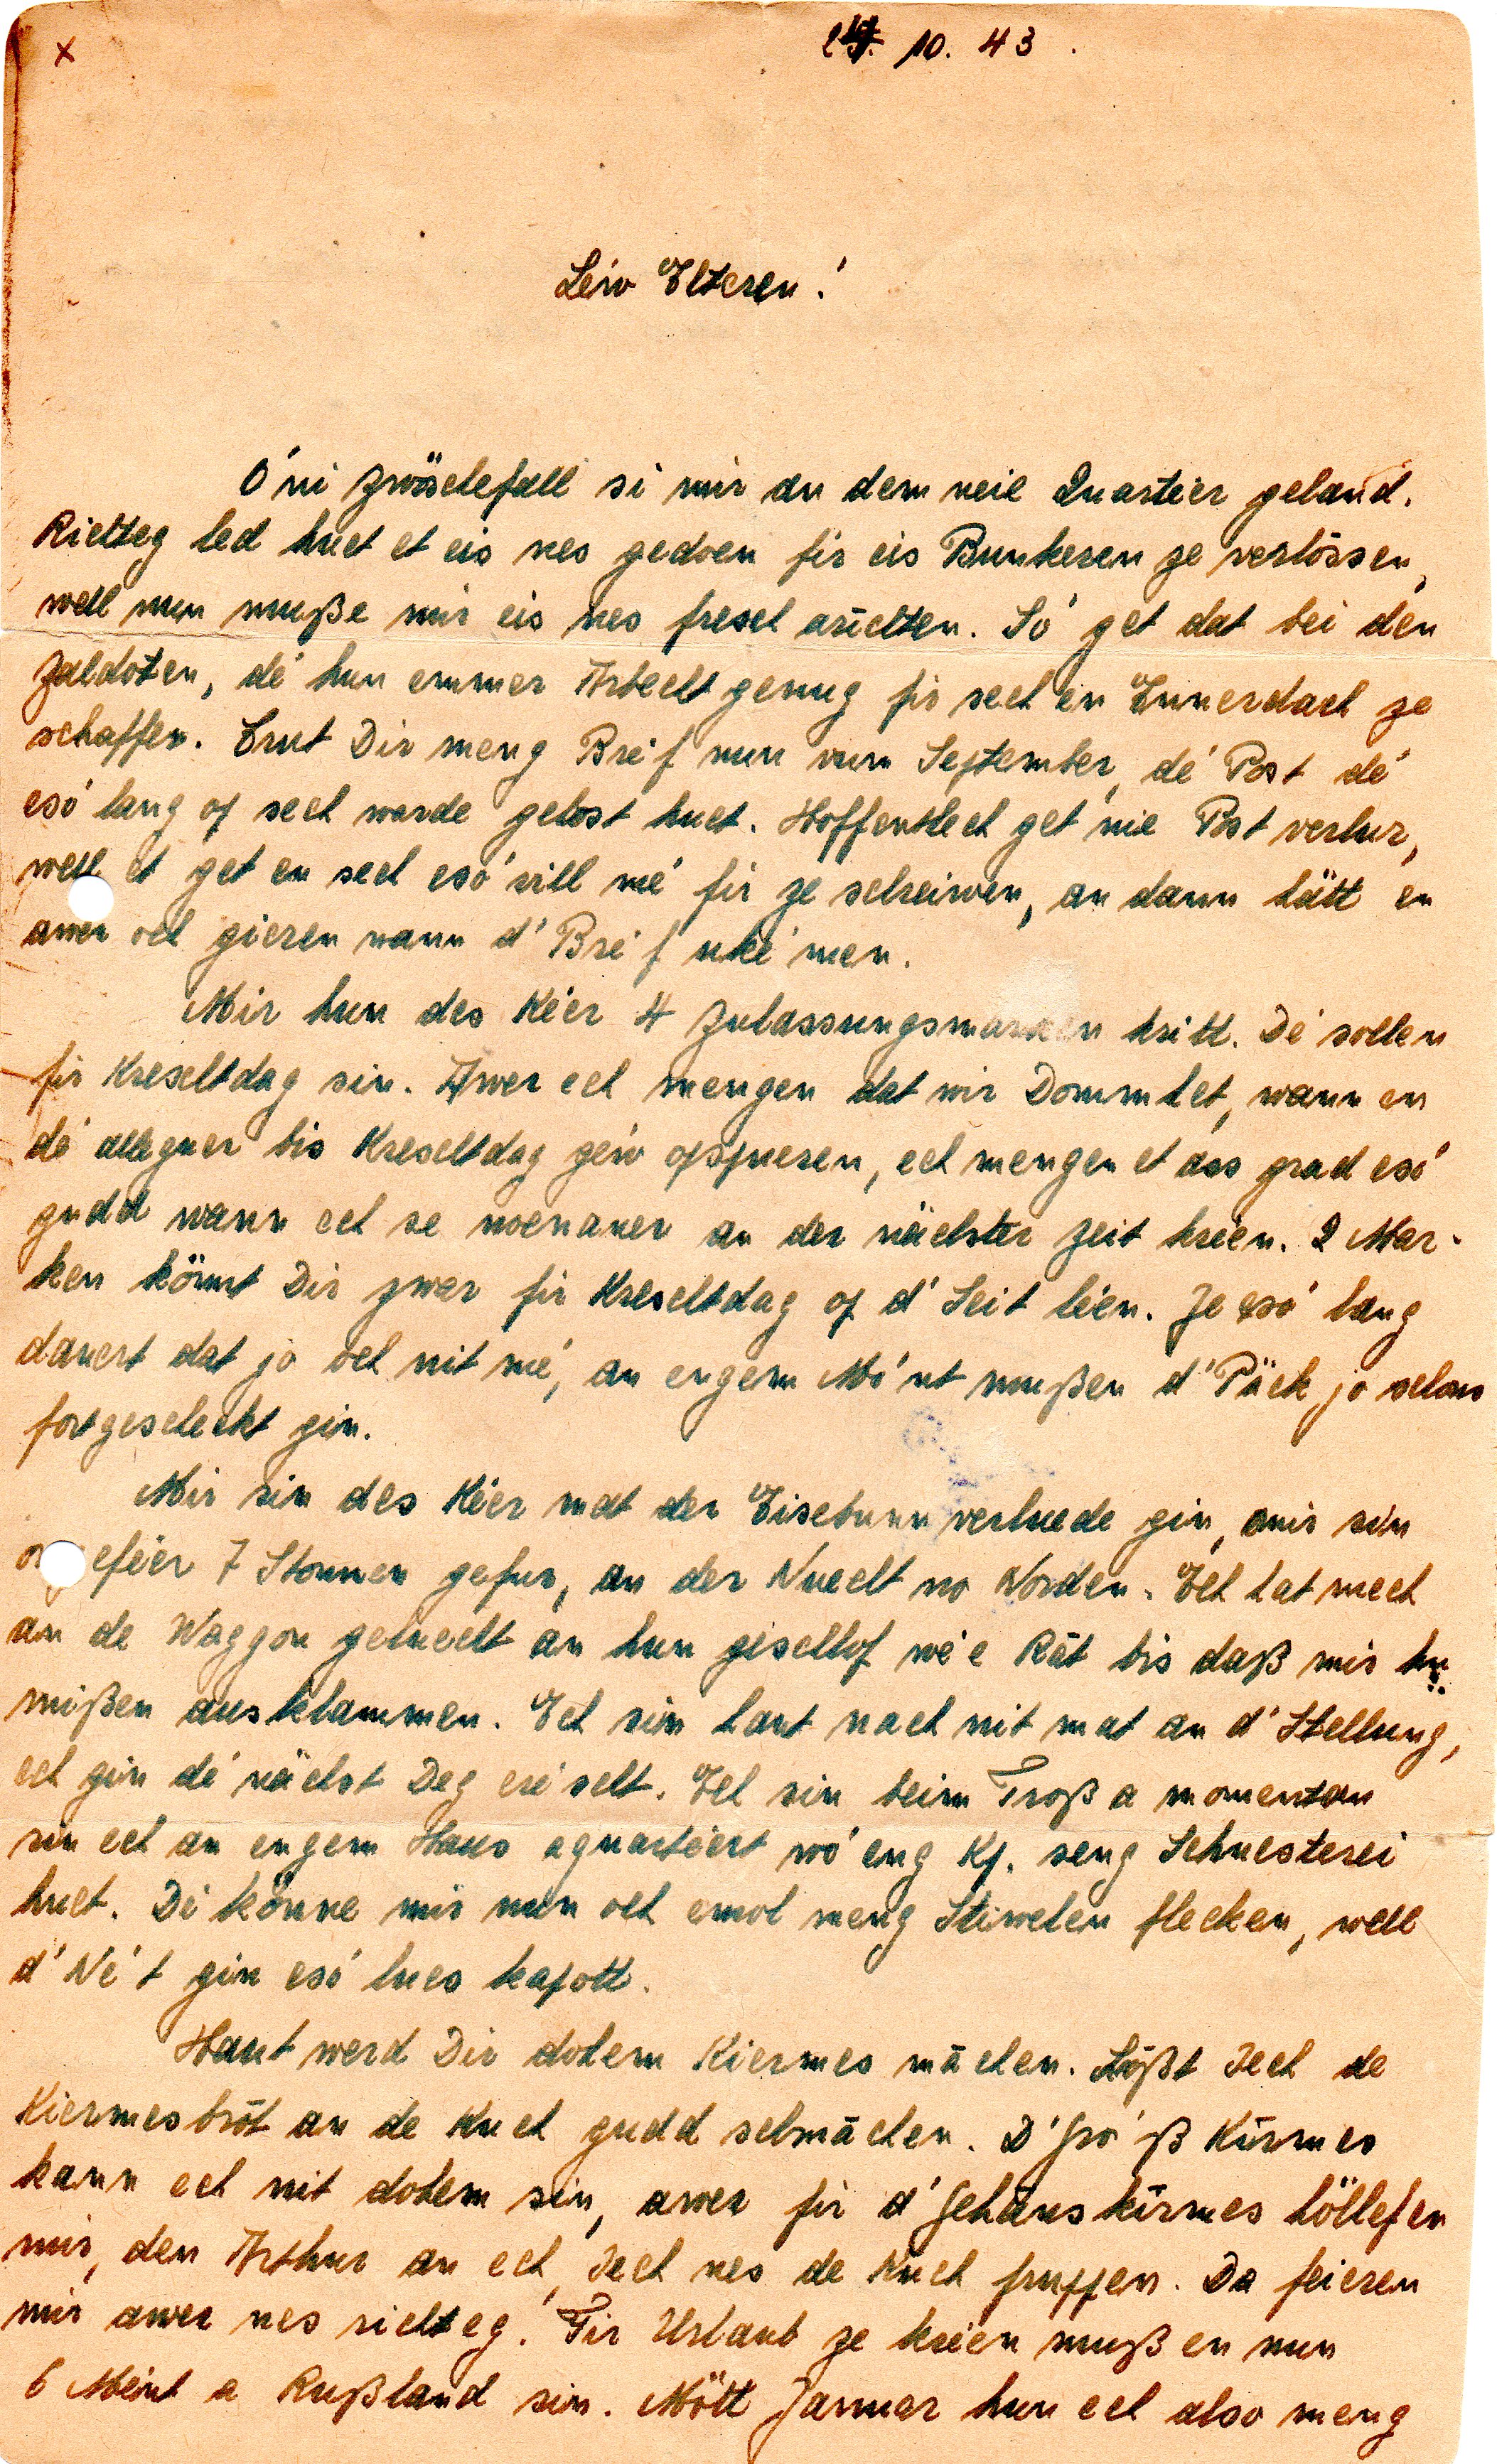 x
24. 10. 43.
Léiw Elteren!
O'ni Zwöschefall si mir an dem neie Quartéer geland.
Richteg led huet et eis nes gedoen fir eis Bunkeren ze verlôssen,
well nun muße mir eis nes fresch ariichten. Só get dat bei den
Zaldoten, dé hun emmer Arbecht genug fir sech en Ennerdach ze
schaffen. Crut Dir meng Bréif nun vum September, dé Post dé
esó lang op sech warde gelost huet. Hoffentlech get nie Post verlur,
well et get en sech esó vill mé fir ze schreiwen, an dann hätt en
awer och gieren wann d'Bréif ukémen.
Mir hun des Kéer 4 Zulassungsmarken kritt. Dé sollen
fir Kreschtdag sin. Awer ech mengen dat wir Dommhet, wann en
dé alleguer bis Kreschtdag géiw opspueren, ech mengen et ass grad esó
gudd wann ech se noenaner an der nächster Zeit kréen. 2 Mar-
ken könnt Dir zwar fir Kreschtdag op d'Seit léen. Ze esó lang
dauert dat jo och nit mé, an engem Mó'nt mußen d'Päck jo schons
fortgescheckt gin.
Mir sin des Kéer mat der Eisebunn verluede gin, mir sin
on eféer 7 Stonnen gefur, an der Nuecht no Norden. Ech hat mech
an de Waggon geluecht an hun geschlof wé e Rat bis daß mir hu
mißen ausklammen. Ech sin haut nach nit mat an d'Stellung,
ech gin dé nächst Deg eréischt. Ech sin beim Troß a momentan
sin ech an engem Haus aquartéert wó eng Kp. seng Schuesterei
huet. Dé könne mir nun och emol meng Stiwelen flecken, well
d'Né't gin esó lues kapott.
Haut werd Dir dohem Kiermes mâchen. Lôßt Iech de
Kiermesbrôt an de Kuch gudd schmâchen. D'Gró'ß Kirmes
kann ech nit dohem sin, awer fir d'Gehanskirmes höllefen
mir, den Arthur an ech, Iech nes de Kuch fruppen. Da feieren
mir awer nes richteg! Fir Urlaub ze kréen muß en nun
6 Méint a Rußland sin. Mött Januar hun ech also meng